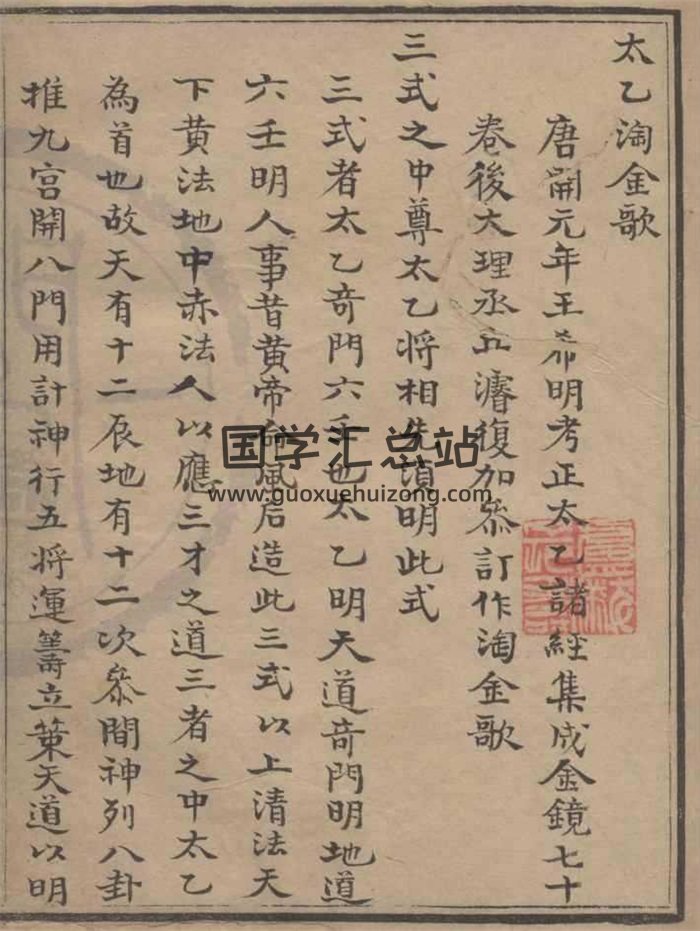 太乙淘金歌
唐開元年王希明考正太乙諸經集成金鏡七十
卷後大理丞丘濬復加叅訂作淘金歌
三式之中尊太乙将相先須明此式
三式者太乙奇門六壬也太乙明天道奇門明地道
六壬明人事昔黄帝命風后造此三式以上清法天
下黄法地中赤法人以應三才之道三者之中太乙
為首也故天有十二辰地有十二次叅間神列八卦
推九宫開八門用計神行五将運籌立策天道以明
国学汇总站
www.guoxuehuizong.com